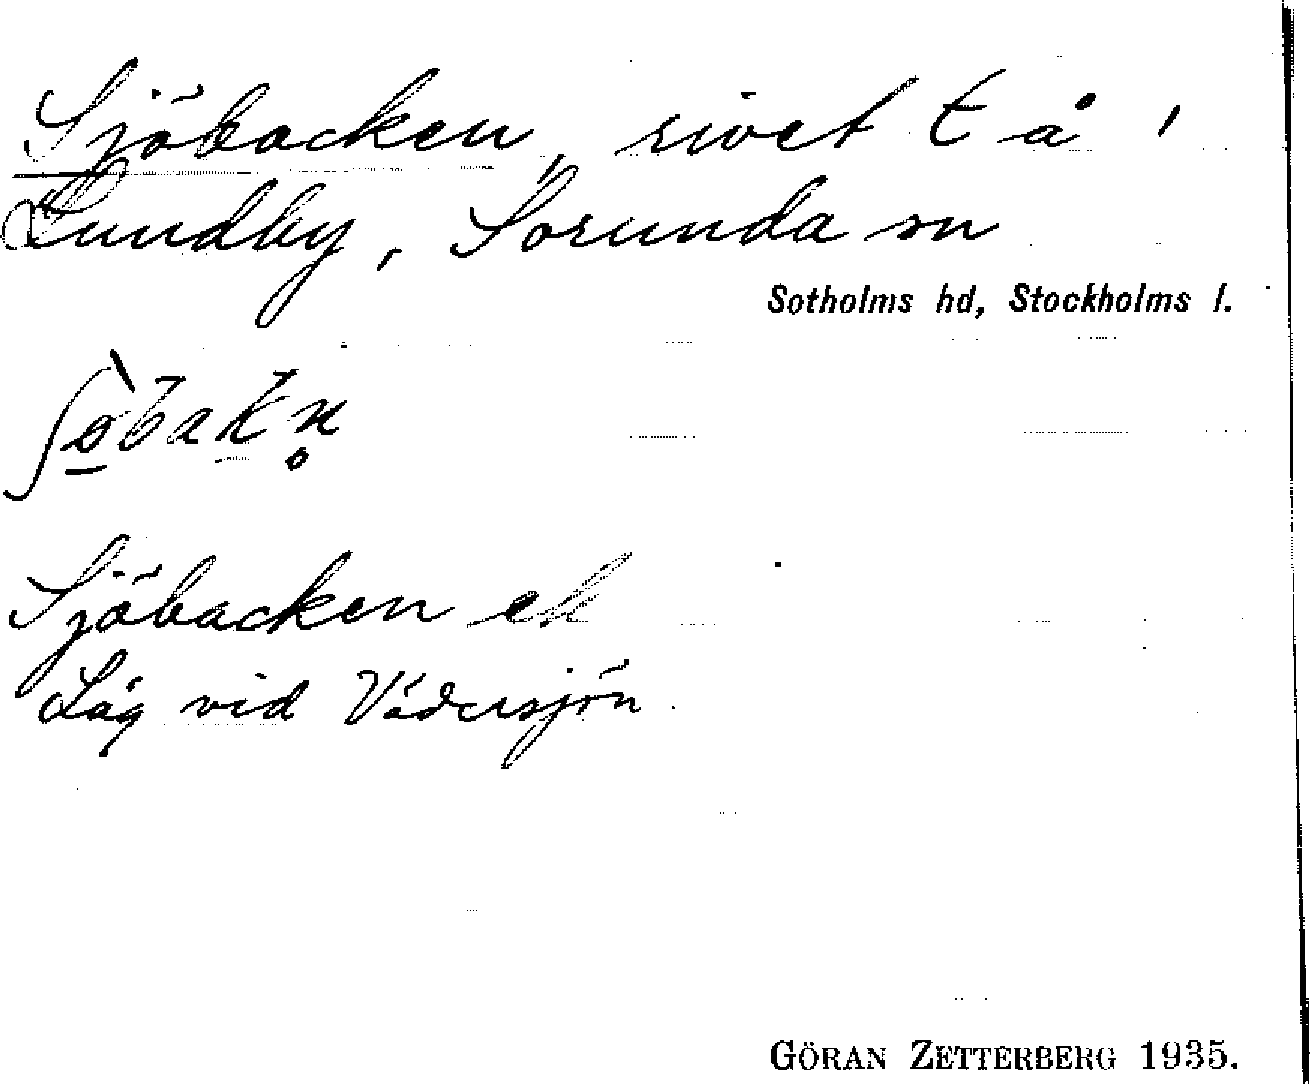 Sjöbacken, rivet t å i
Lundby, Sorunda sn
Sotholms hd, Stockholms l.
Sjöbacken ek
Låg vid Vädersjön
GÖRAN ZETTERBERG 1935.